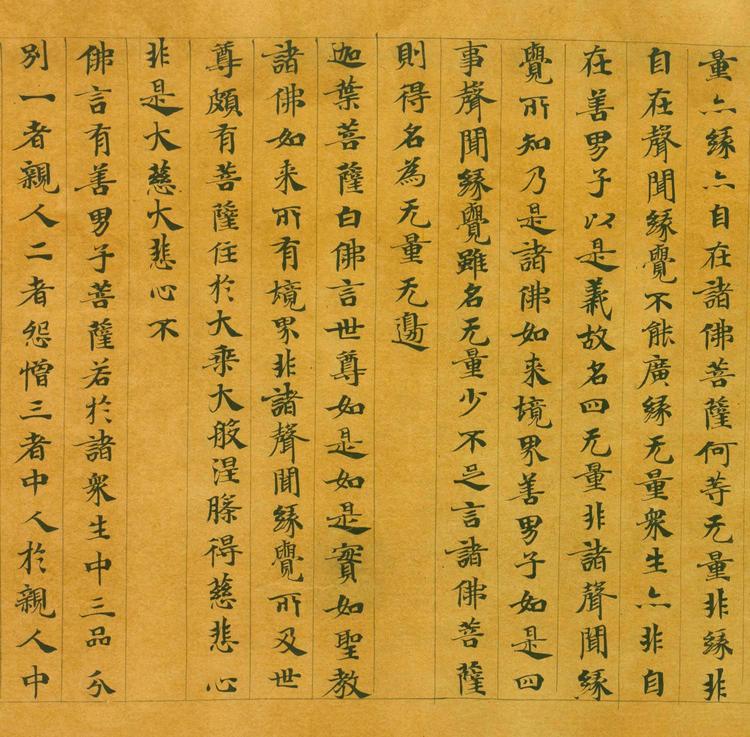 量亦縁亦自在諸佛菩薩何等无量非縁非
自在聲聞縁覺不能廣縁无量衆生亦非自
在善男子以是義故名四无量非諸聲聞縁
覺所知乃是諸佛如来境界善男子如是四
事聲聞縁覺雖名无量少不足言諸佛菩薩
則得名為无量无邊
迦葉菩薩白佛言世尊如是如是實如聖教
諸佛如来所有境界非諸聲聞縁覺所及世
尊頗有菩薩住於大乘大般涅槃得慈悲心
非是大慈大悲心不
佛言有善男子菩薩若於諸衆生中三品分
別一者親人二者怨憎三者中人於親人中